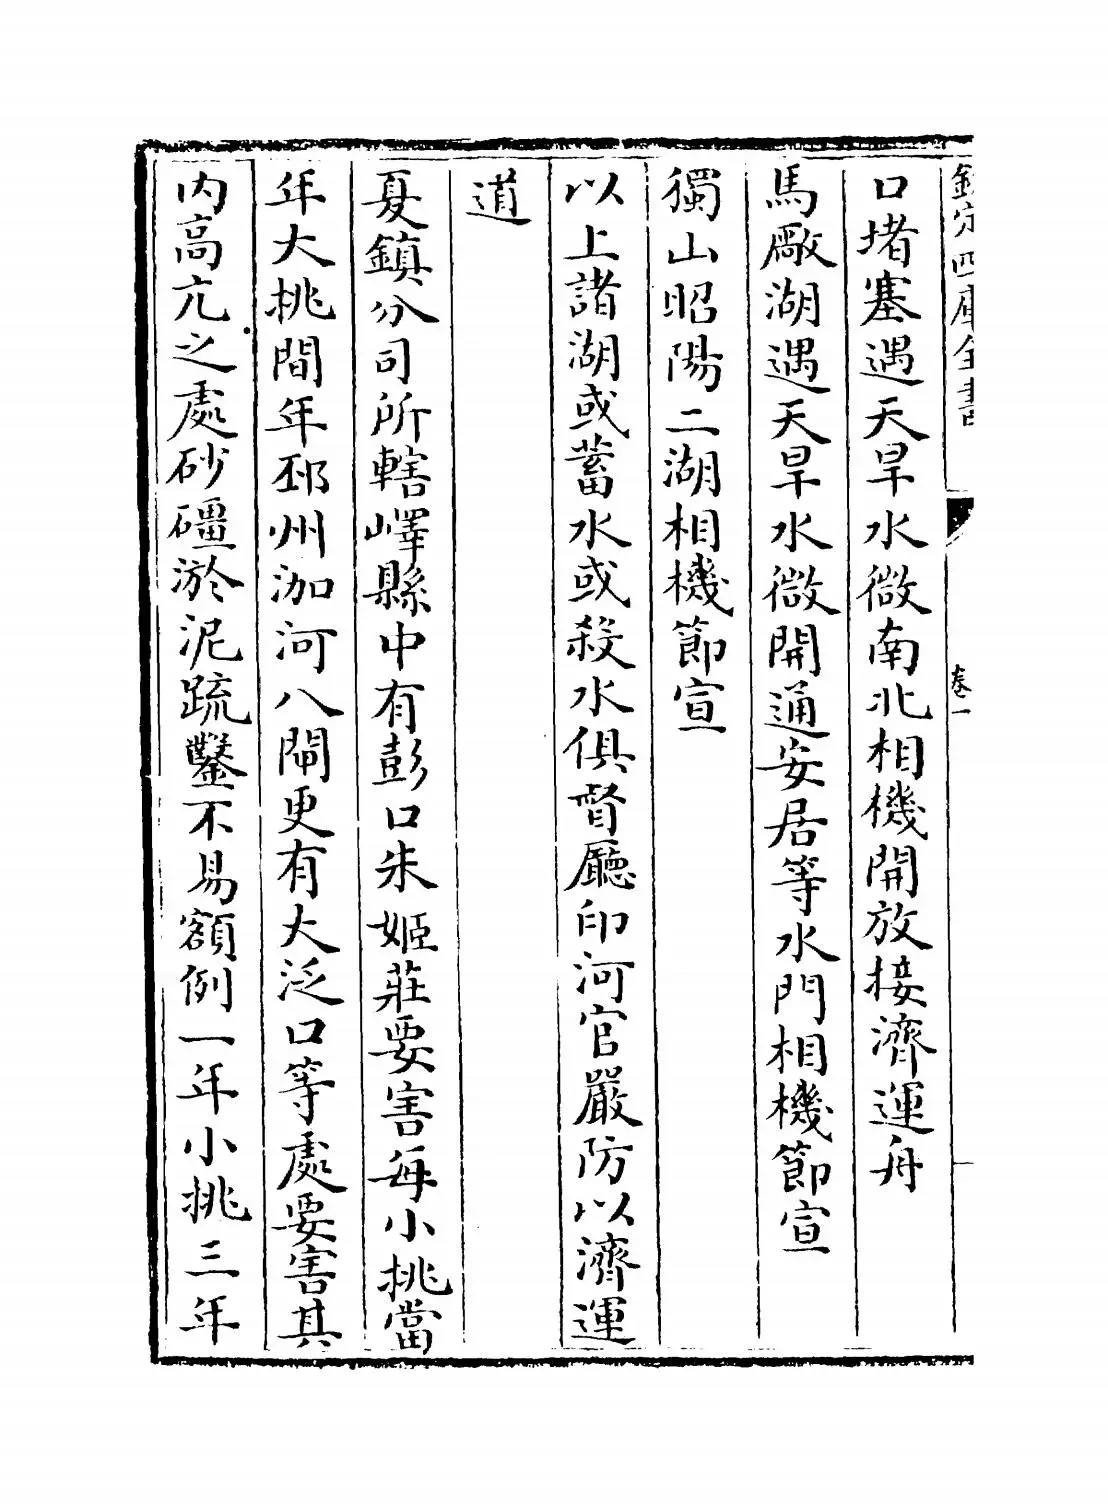 欽定四庫全書
卷一
口堵塞遇天旱水微南北相機開放接濟運舟
馬厰湖遇天旱水微開通安居等水門相機節宣
獨山昭陽二湖相機節宣
以上諸湖或蓄水或殺水俱督廳印河官嚴防以濟運
道
夏鎮分司所轄嶧縣中有彭口朱姬莊要害每小挑當
年大挑間年邳州泇河八閘更有大泛口等處要害其
内高亢之處砂礓淤泥疏鑿不易額例一年小挑三年